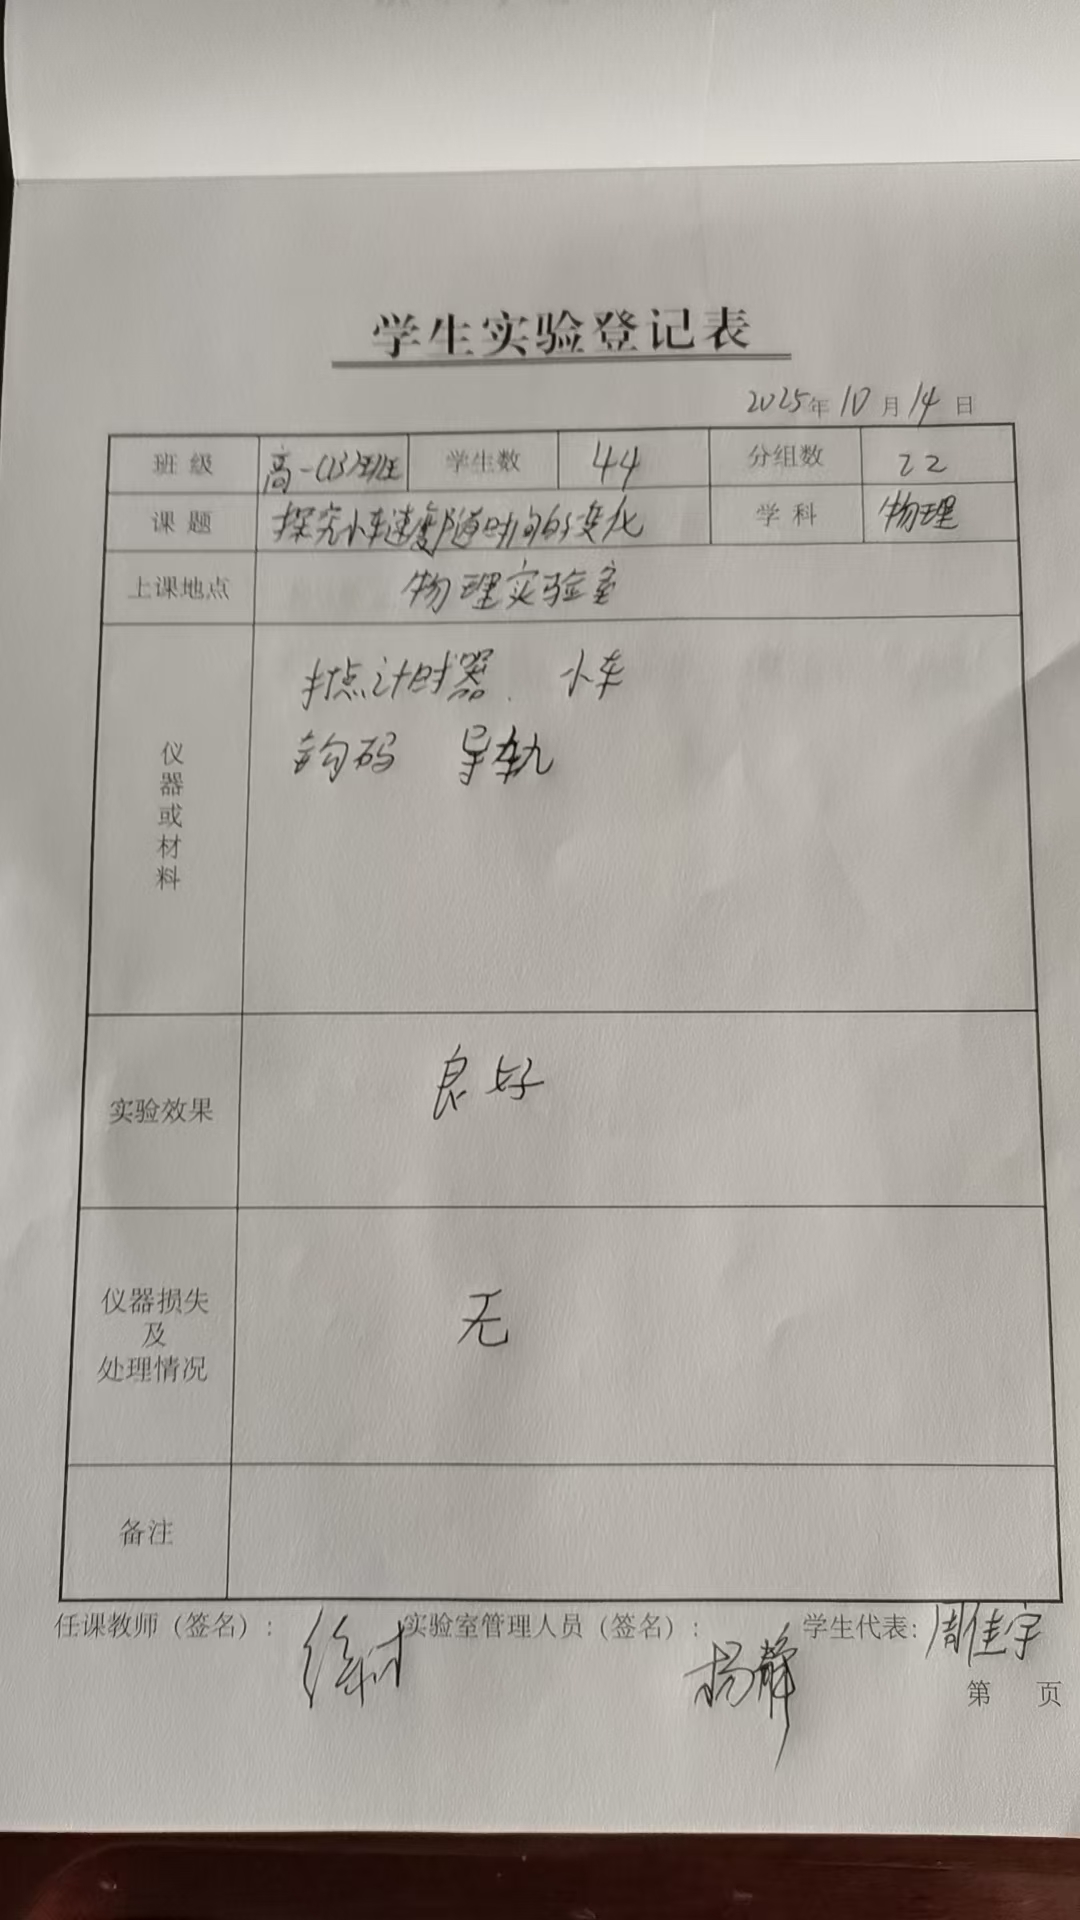 学生实验登记表
2025年10月14日
班级 高一(13)班 学生数 44 分组数 22
课题 探究小车速度随时间的变化 学科 物理
上课地点 物理实验室
仪器或材料 打点计时器 小车
钩码 导轨
实验效果 良好
仪器损失
及
处理情况 无
备注
任课教师（签名）： 实验室管理人员（签名）：杨静 学生代表：周佳宇
第 页